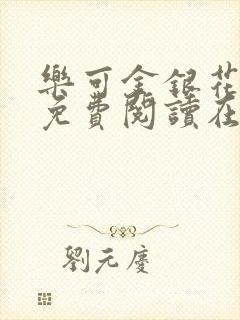 樂可金銀花
免費閱讀在
劉元慶